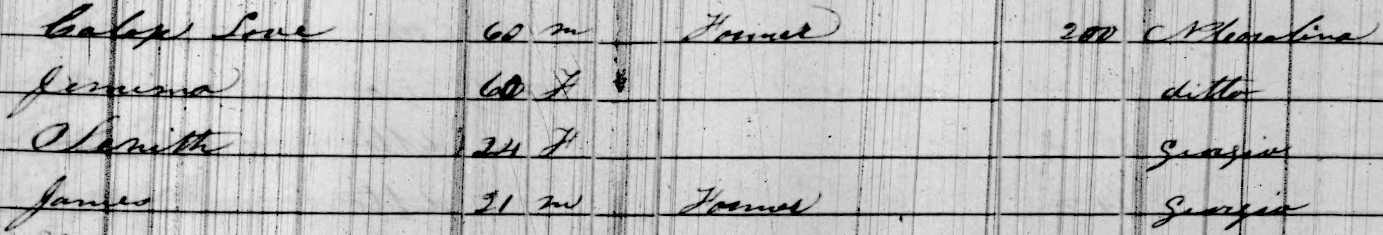 Love 60 m Farmer 200 N Carolina
Jemima 60 F ditto
24 F Georgia
James 21 m Farmer Georgia